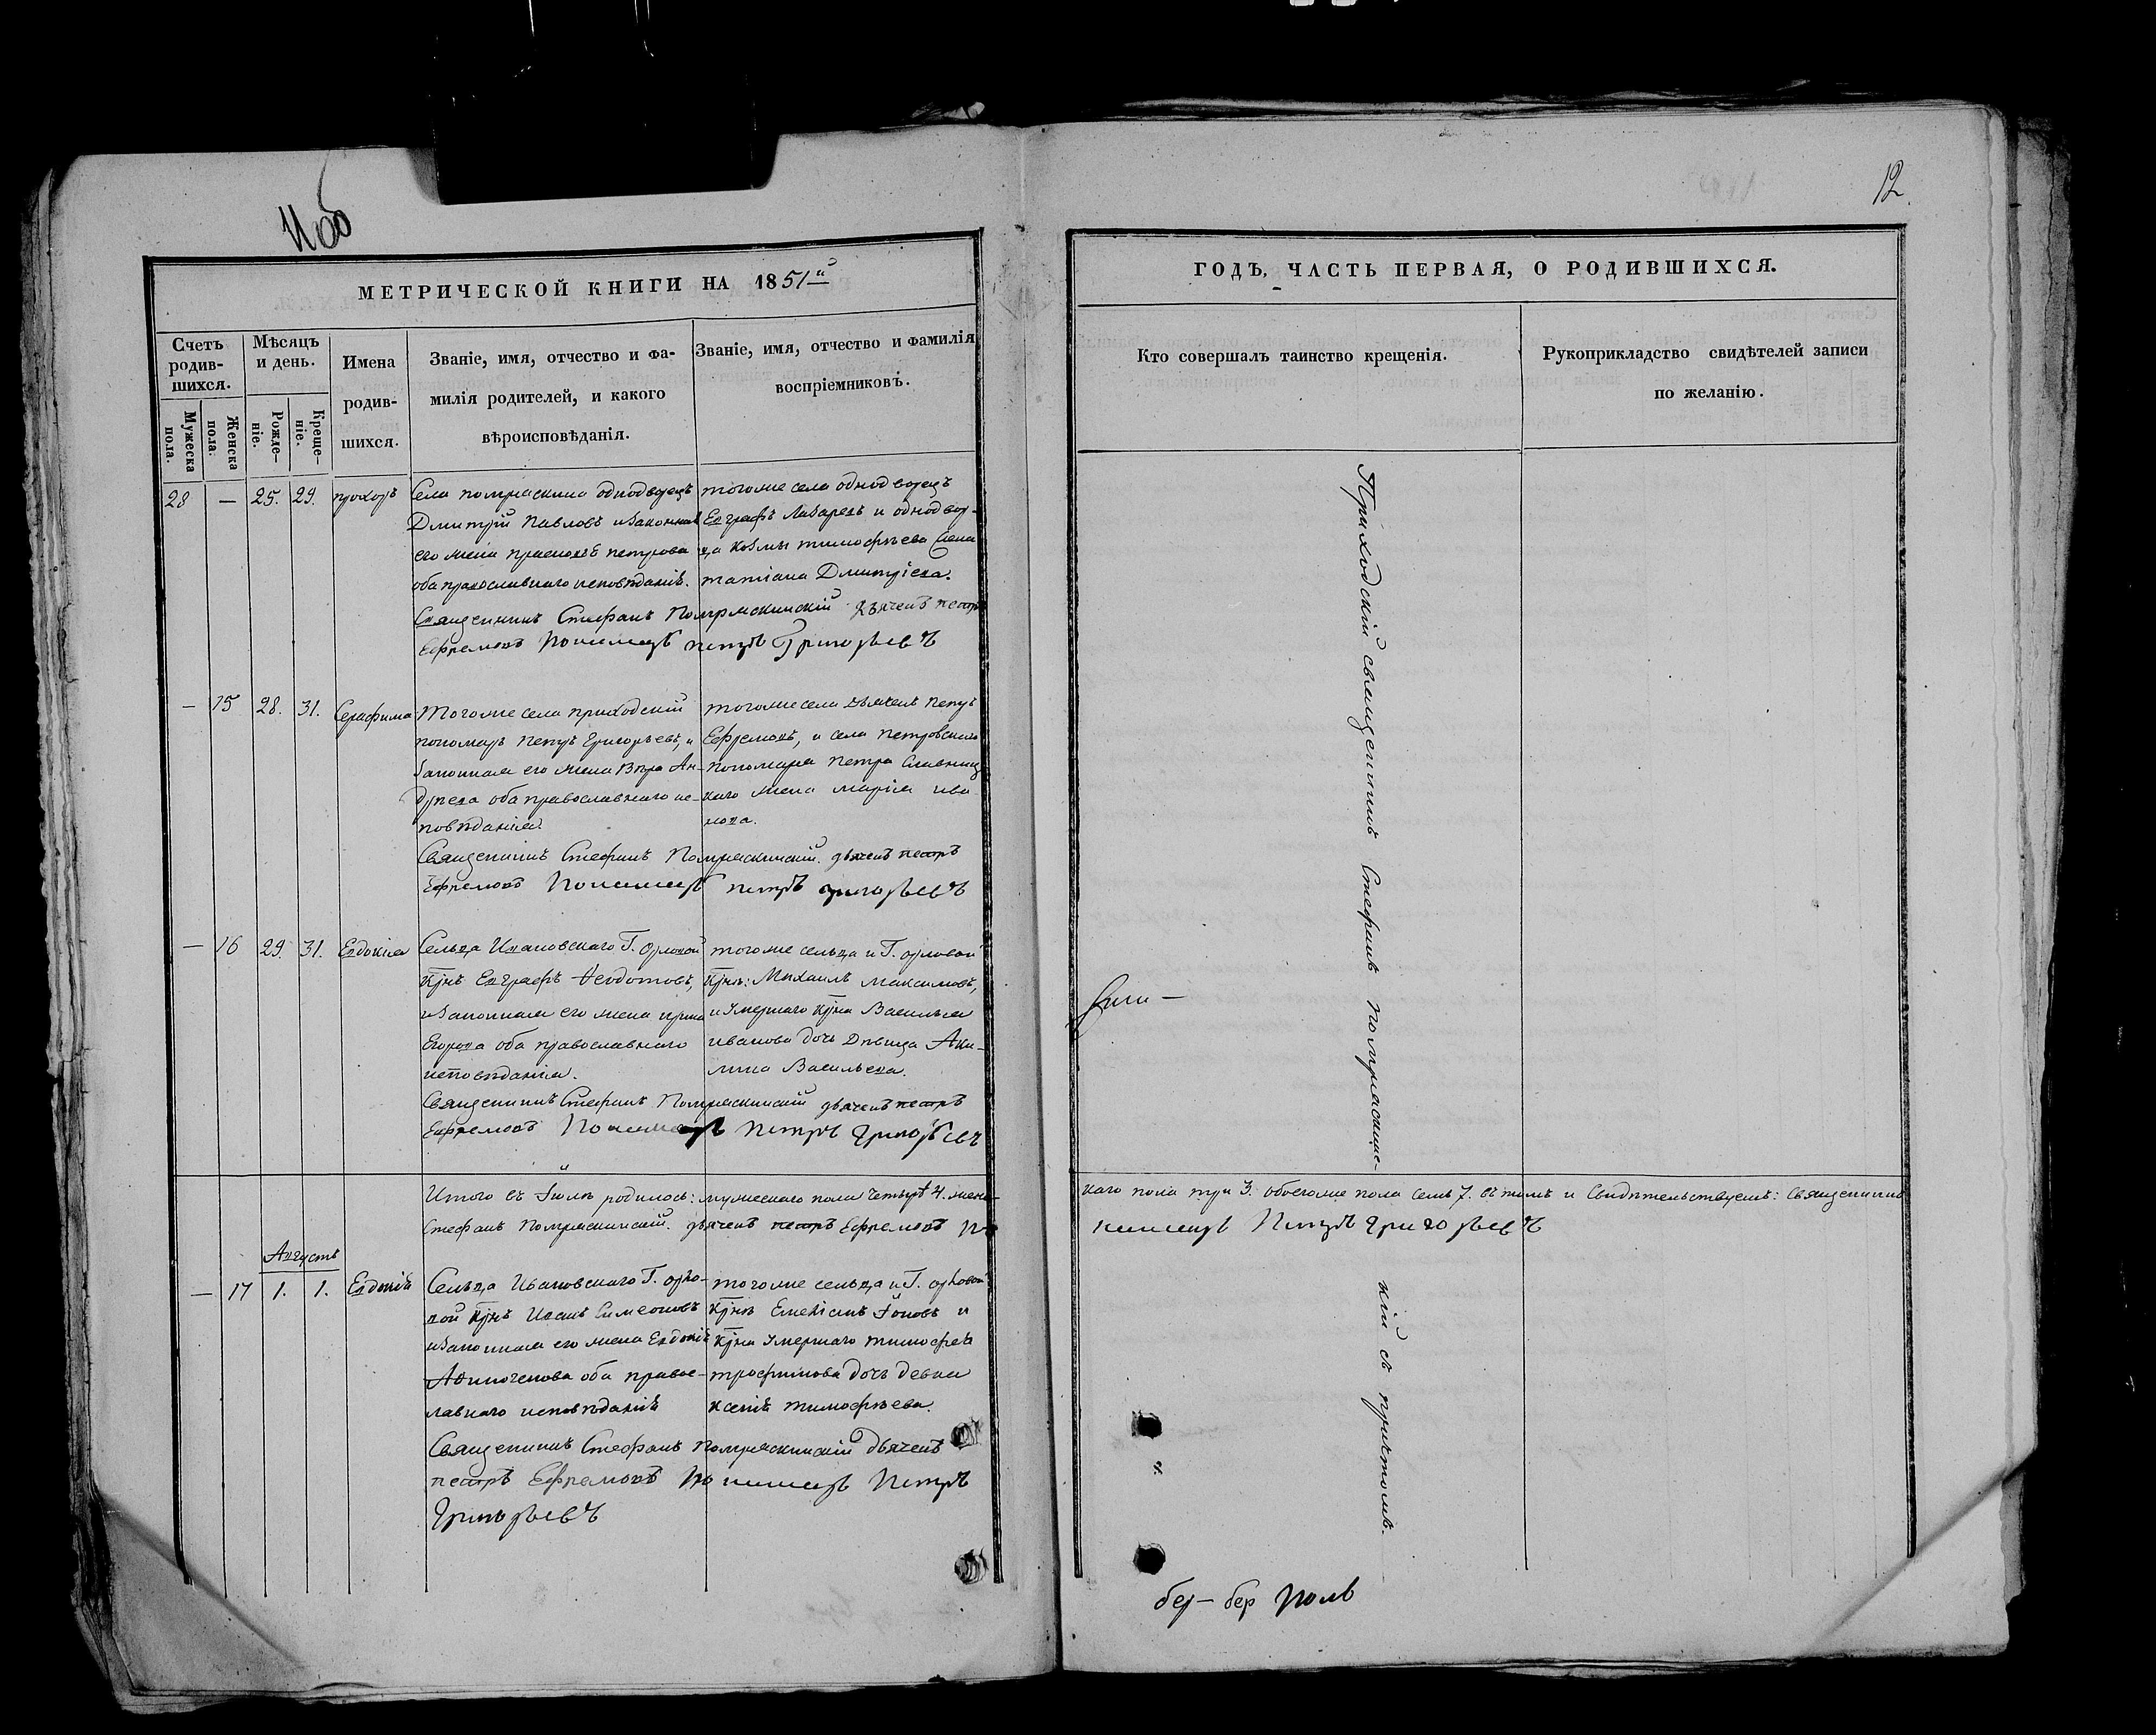 12.
МЕТРИЧЕСКОЙ КНИГИ НА 1851й
ГОДЪ, ЧАСТЬ ПЕРВАЯ, О РОДИВШИХСЯ.
Счетъ родив-
шихся.
Мужеска пола.
Женска пола.
Мѣсяцъ и день.
Рожде-
ніе.
Креще-
ніе.
Имена
родив-
шихся.
Званіе, имя, отчество и фа-
милія родителей, и какого
вѣроисповѣданія.
Званіе, имя, отчество и фамилія
воспріемниковъ.
Кто совершалъ таинство крещенія.
Рукоприкладство свидѣтелей записи
по желанію.
28 — 25. 29. прохоръ
Села помряскина однодворецъ
Дмитрій Павловъ изаконная
его жена петрова
оба православнаго исповѣданія.
тогоже села однодворецъ
Евграфъ Лазаревъ и однодвор-
ца козмы тимофѣева жена
татіана Дмитріева.
Священникъ Стефанъ Помряскинскій дьячекъ петръ
Ефремовъ Пономарь петръ Григорьевъ
— 15 28. 31. Серафима
Тогоже села приходскій
пономарь петръ Григорьевъ, и
законная его жена Вѣра Ан-
дреева оба православнаго ис-
повѣданія.
тогоже села дьячекъ петръ
Ефремовъ, и села петровскаго
пономаря петра
жена марія ива
нова.
Священникъ Стефанъ Помряскинскій. дьячекъ петръ
Ефремовъ Пономарь петръ григорьевъ
— 16 29. 31. Евдокіа
Сельца Ивановскаго Г. Орловой
крнъ Евграфъ Ѳеодотовъ,
изаконная его жена ирина
Егорова оба православнаго
исповѣданія.
тогоже сельца и Г. орловой
крнъ: Михаилъ максимовъ,
и умершаго крна Василья
иванова дочь Дѣвица Аки-
лина Васильева.
Священникъ Стефанъ Помряскинскій дьячекъ петръ
Ефремовъ Пономарь Петръ Григорьевъ
Итого въ Іюлѣ родилось: мужескаго пола четыре 4. женс-
каго пола три 3. обоегоже пола семь 7. въ томъ и Свидѣтельствуемъ: священникъ
Стефанъ Помряскинскій. дьячекъ петръ Ефремовъ по
номарь Петръ Григорьевъ
Августъ
— 17 1. 1. Евдокія
Сельца Ивановскаго Г. орло-
вой крнъ Иванъ Симеоновъ
изаконная его жена Евдокія
оба правос-
лавнаго исповѣданія
тогоже сельца и Г. орловой
крнъ Емеліанъ Іоновъ и
крна умершаго тимофея
трофимова дочь девка
ксенія тимофѣева.
Священникъ Стефанъ Помряскинскій дьячекъ
петръ Ефремовъ пономарь Петръ
Григорьевъ
Приходскій священникъ Стефанъ помряскинс-
кій съ причтомъ.